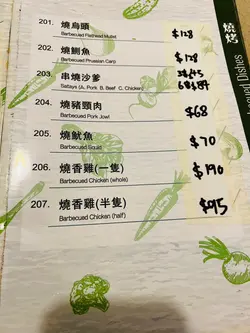 燒烤
Barbecued Dishes
201. 燒烏頭 $128
Barbecued Flathead Mullet
202. 燒鯽魚 $128
Barbecued Prussian Carp
203. 串燒沙爹
Satays (A. Pork B. Beef C. Chicken)
204. 燒豬頸肉 $68
Barbecued Pork Jowl
205. 燒魷魚 $70
Barbecued Squid
206. 燒香雞(一隻) $190
Barbecued Chicken (whole)
207. 燒香雞(半隻) $95
Barbecued Chicken (half)